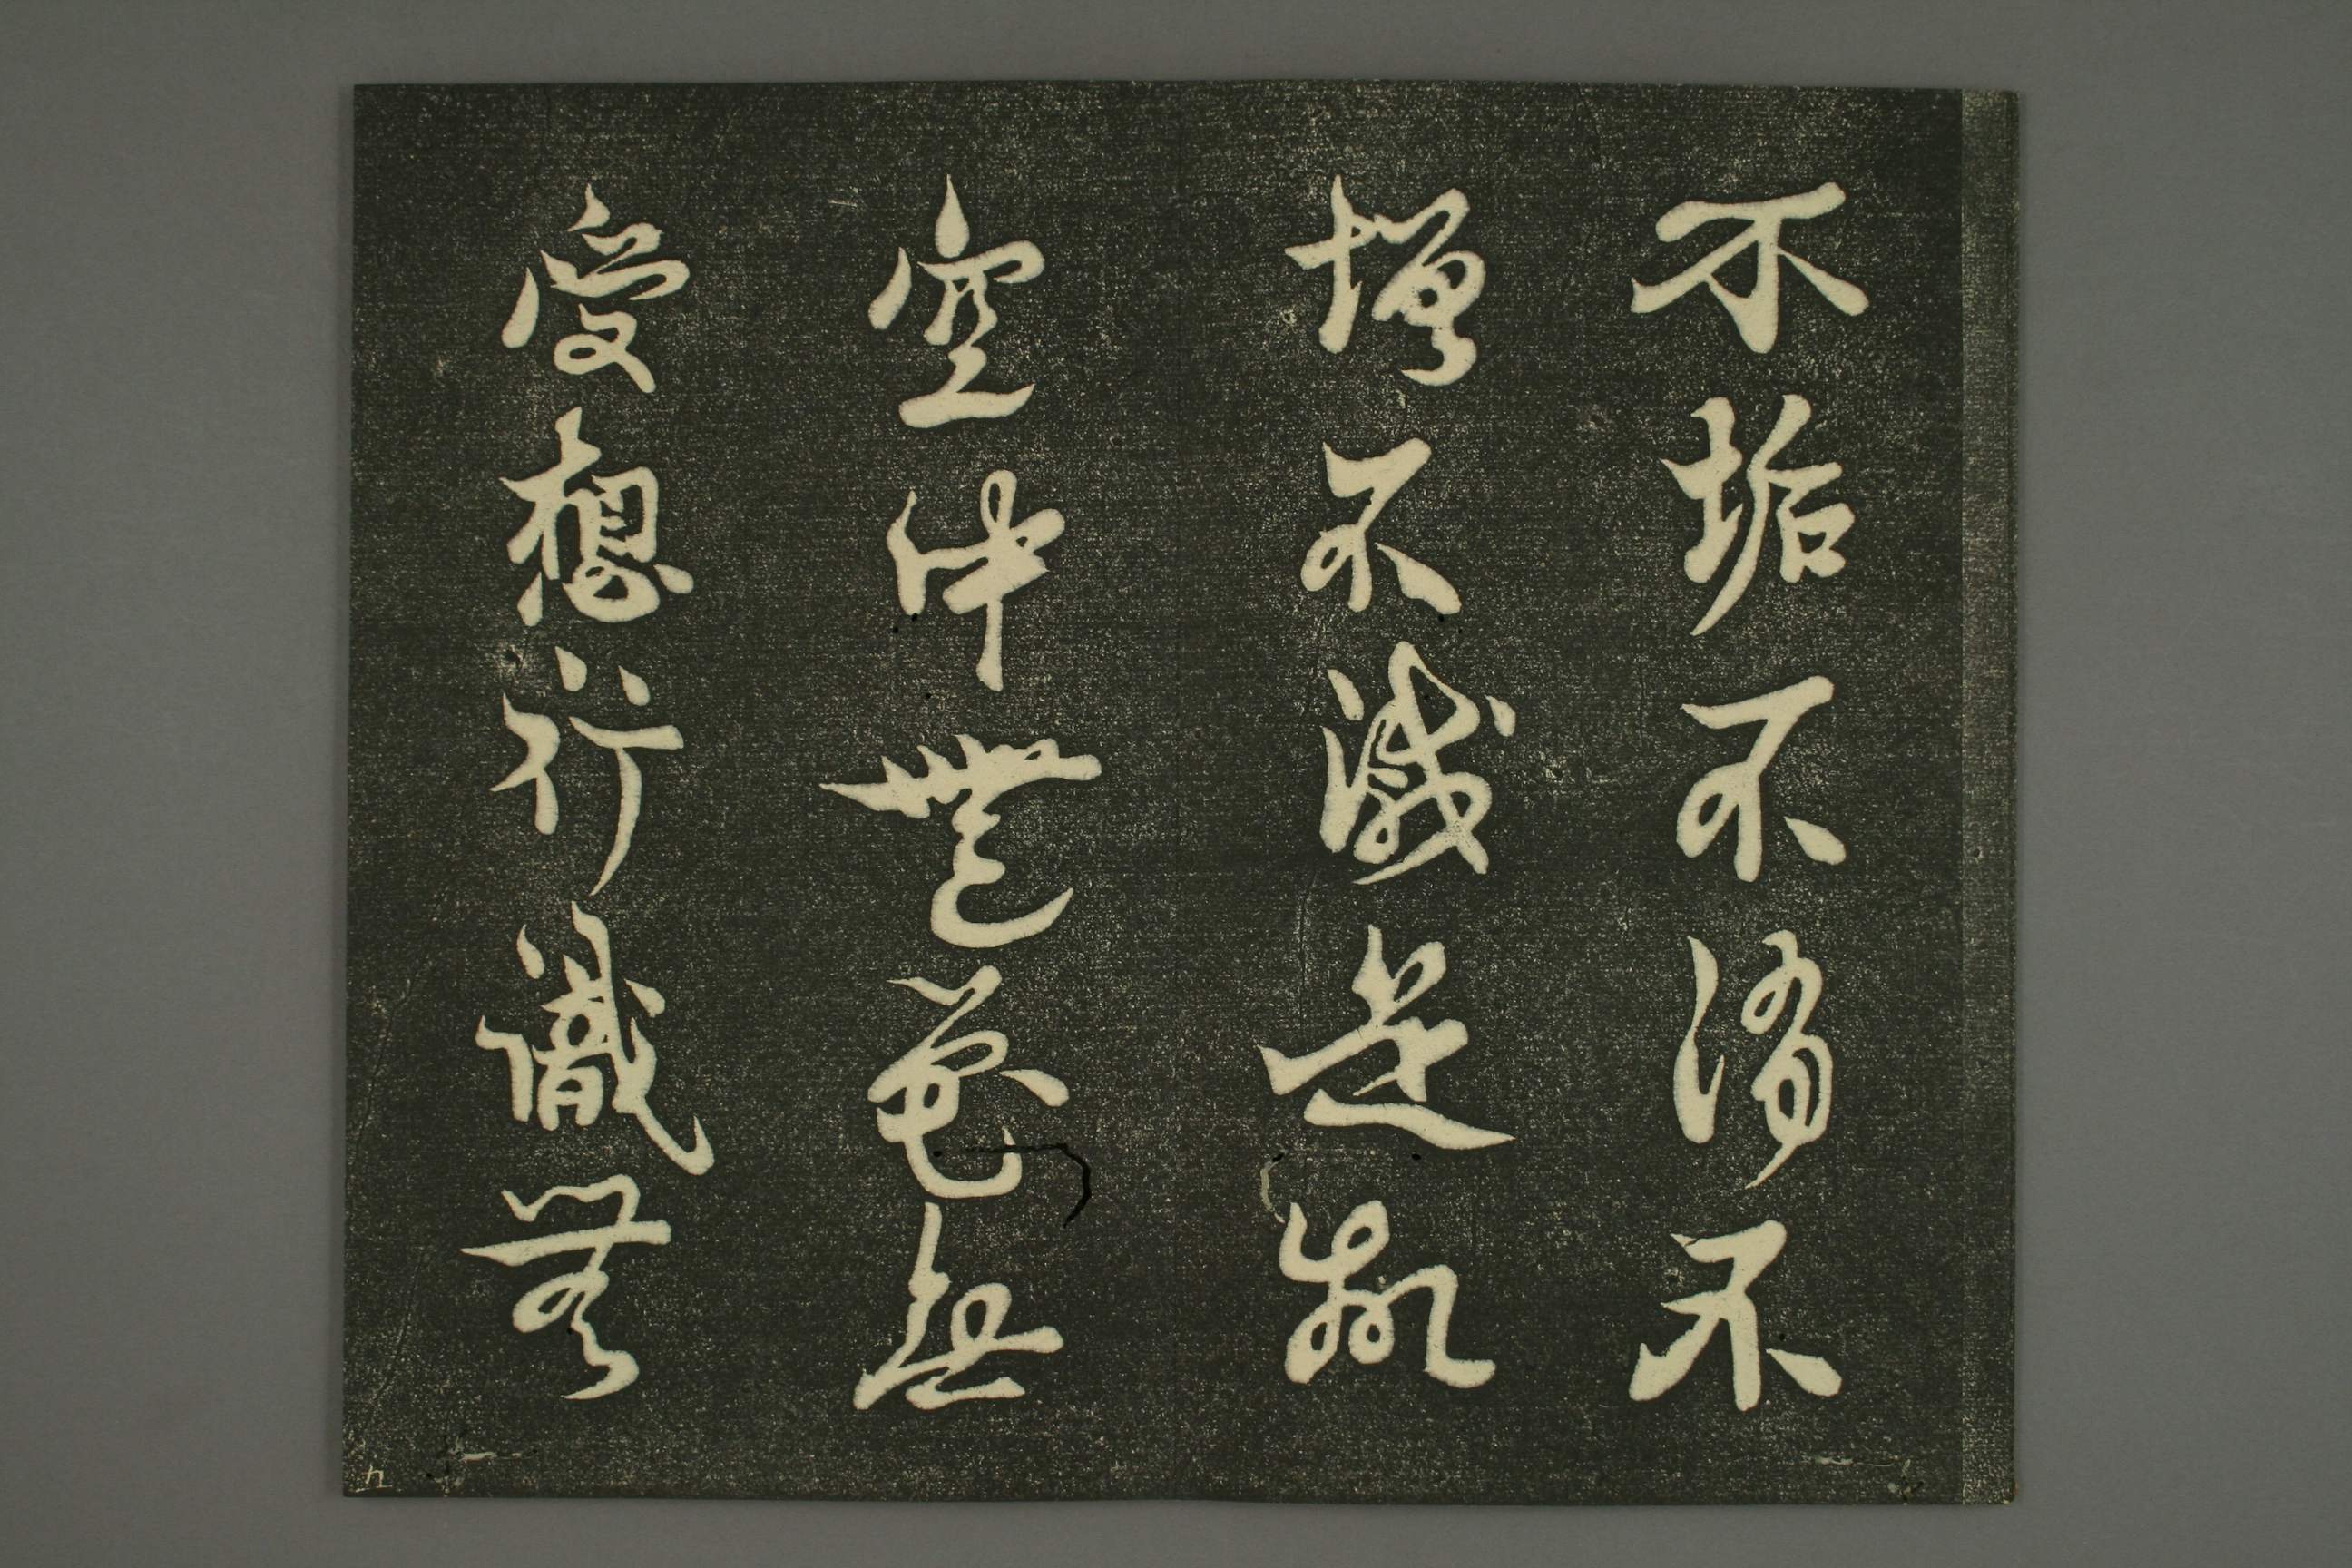 不垢不淨不
增不減是故
空中無色無
受想行識無
九